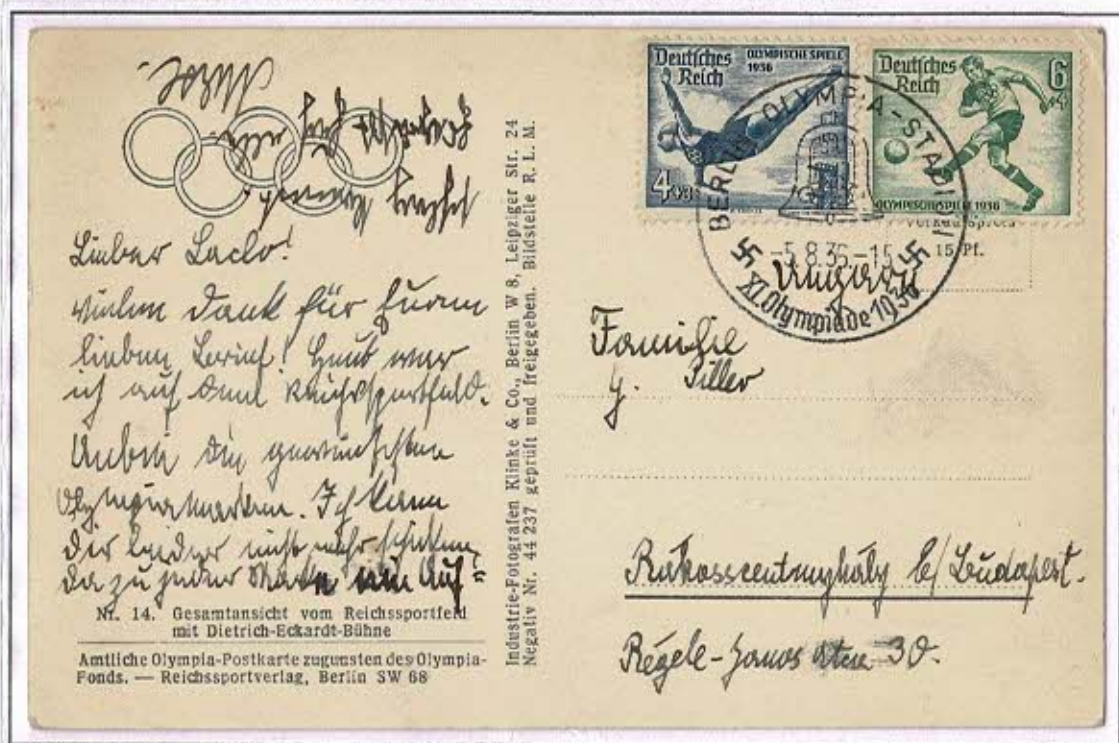 Lieber Laclo!
vielen Dank für Euren
lieben Brief! Heute war
ich auf dem Reichssportfeld.
Anbei die gewünschten
Olympiamarken. Ich kann
Dir leider nicht mehr schicken,
da zu jeder Marke ein Auf=
Nr. 14. Gesamtansicht vom Reichssportfeld
mit Dietrich-Eckardt-Bühne
Amtliche Olympia-Postkarte zugunsten des Olympia-
Fonds. — Reichssportverlag, Berlin SW 68
Industrie-Fotografen Klinke & Co., Berlin W 8, Leipziger Str. 24
Negativ Nr. 44 237 geprüft und freigegeben. Bildstelle R. L. M.
Deutsches Reich
OLYMPISCHE SPIELE 1936
4
Deutsches Reich
6
OLYMPISCHE SPIELE 1936
BERLIN OLYMPIA-STADION
-5.8.36-15
XI. Olympiade 1936
Verkaufspreis
15 Pf.
Ungarn
Familie
Piller
Rákosszentmyhály b/ Budapest.
Régele-Janos utca 30.